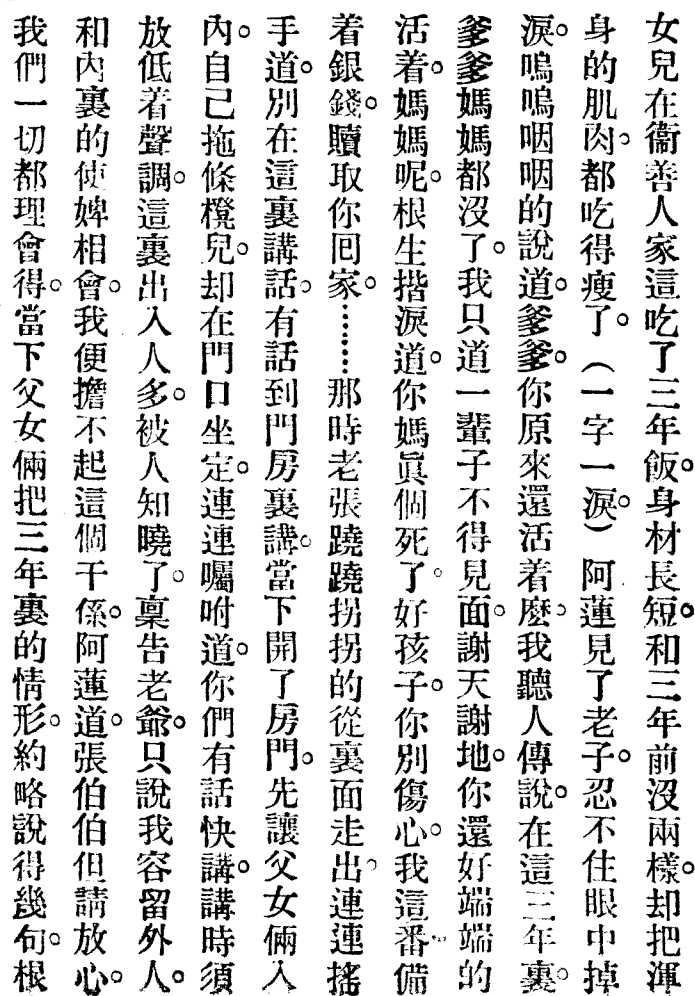 女兒在衞善人家這吃了三年飯。身材長短。和三年前沒兩樣。却把渾
身的肌肉。都吃得瘦了。(一字一淚。)阿蓮見了老子。忍不住眼中掉
淚。嗚嗚咽咽的說道。爹爹。你原來還活着麽。我聽人傳說。在這三年裏。
爹爹媽媽都沒了。我只道一輩子不得見面。謝天謝地。你還好端端的
活着。媽媽呢。根生揩淚道。你媽眞個死了。好孩子。你別傷心。我這番備
着銀錢。贖取你囘家。……那時老張蹺蹺拐拐的從裏面走出。連連搖
手道。別在這裏講話。有話到門房裏講。當下開了房門。先讓父女倆入
內。自己拖條櫈兒。却在門口坐定。連連囑咐道。你們有話快講。講時須
放低着聲調。這裏出入人多。被人知曉了。稟告老爺。只說我容留外人。
和內裏的使婢相會。我便擔不起這個干係。阿蓮道。張伯伯但請放心。
我們一切都理會得。當下父女倆把三年裏的情形。約略說得幾句。根